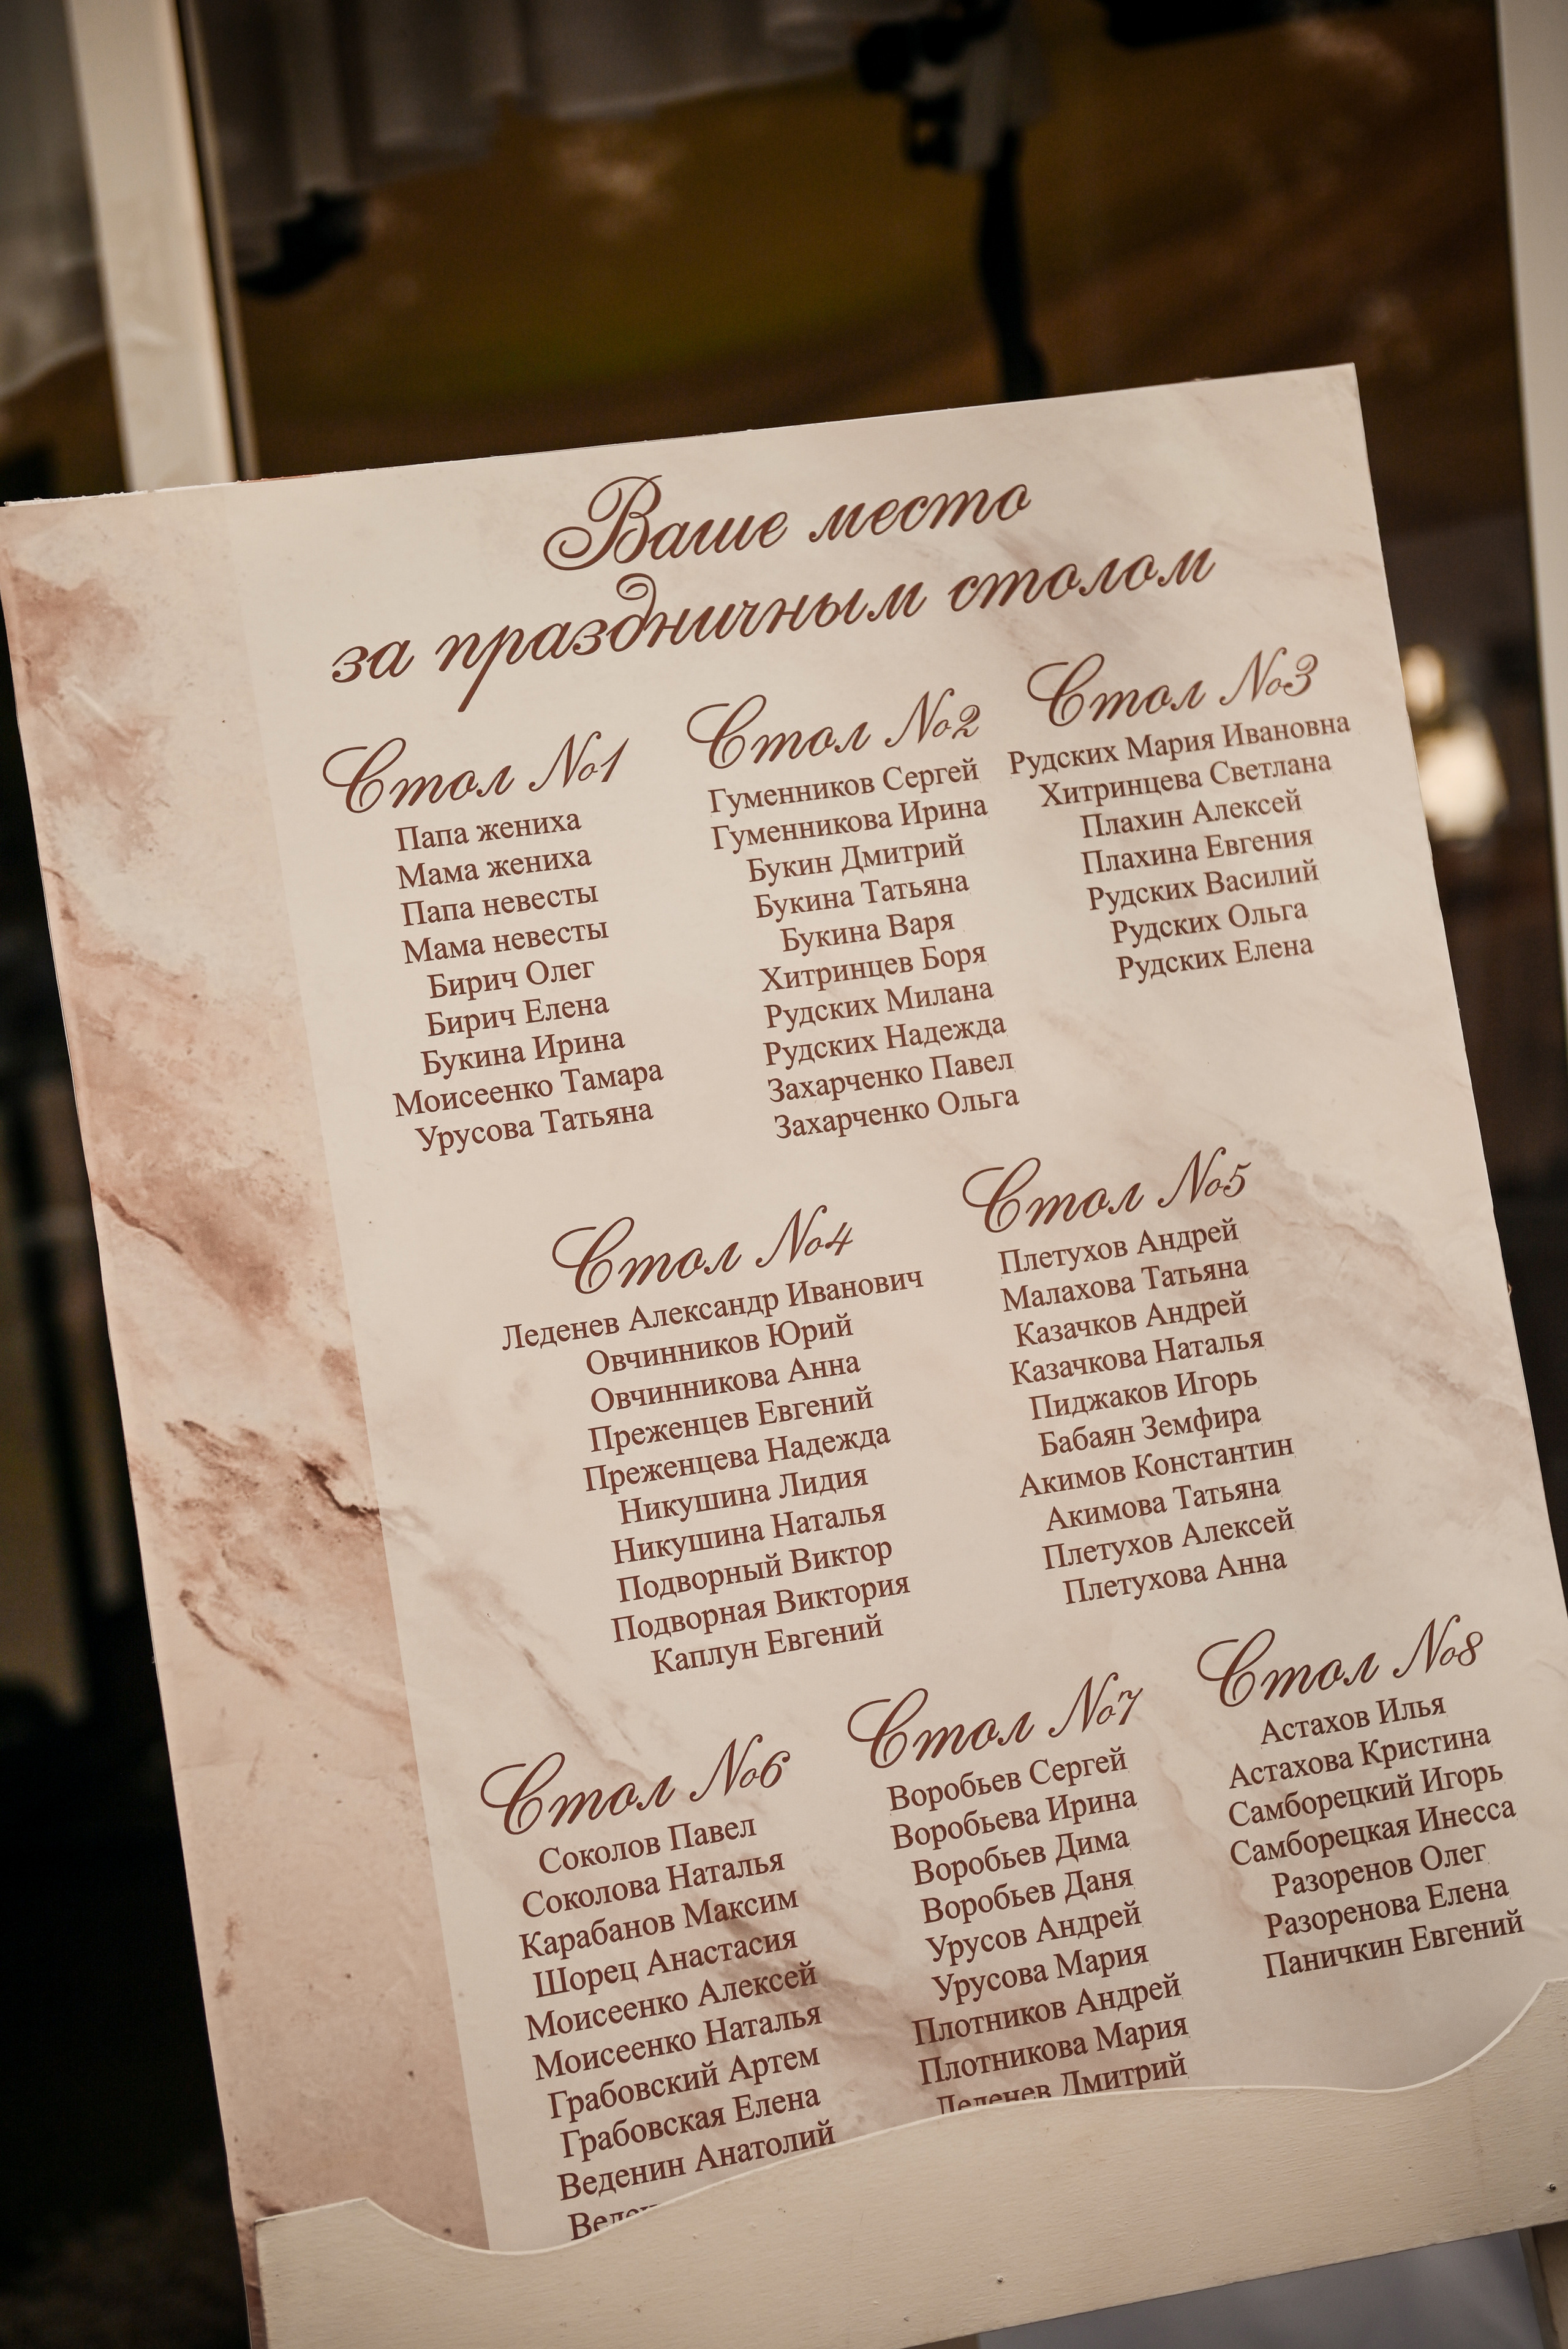 Ваше место
за праздничным столом
Стол №1
Папа жениха
Мама жениха
Папа невесты
Мама невесты
Бирич Олег
Бирич Елена
Букина Ирина
Моисеенко Тамара
Урусова Татьяна
Стол №2
Гуменников Сергей
Гуменникова Ирина
Букин Дмитрий
Букина Татьяна
Букина Варя
Хитринцев Боря
Рудских Милана
Рудских Надежда
Захарченко Павел
Захарченко Ольга
Стол №3
Рудских Мария Ивановна
Хитринцева Светлана
Плахин Алексей
Плахина Евгения
Рудских Василий
Рудских Ольга
Рудских Елена
Стол №4
Леденев Александр Иванович
Овчинников Юрий
Овчинникова Анна
Преженцев Евгений
Преженцева Надежда
Никушина Лидия
Никушина Наталья
Подворный Виктор
Подворная Виктория
Каплун Евгений
Стол №5
Плетухов Андрей
Малахова Татьяна
Казачков Андрей
Казачкова Наталья
Пиджаков Игорь
Бабаян Земфира
Акимов Константин
Акимова Татьяна
Плетухов Алексей
Плетухова Анна
Стол №6
Соколов Павел
Соколова Наталья
Карабанов Максим
Шорец Анастасия
Моисеенко Алексей
Моисеенко Наталья
Грабовский Артем
Грабовская Елена
Веденин Анатолий
Стол №7
Воробьев Сергей
Воробьева Ирина
Воробьев Дима
Воробьев Даня
Урусов Андрей
Урусова Мария
Плотников Андрей
Плотникова Мария
Леденев Дмитрий
Стол №8
Астахов Илья
Астахова Кристина
Самборецкий Игорь
Самборецкая Инесса
Разоренов Олег
Разоренова Елена
Паничкин Евгений